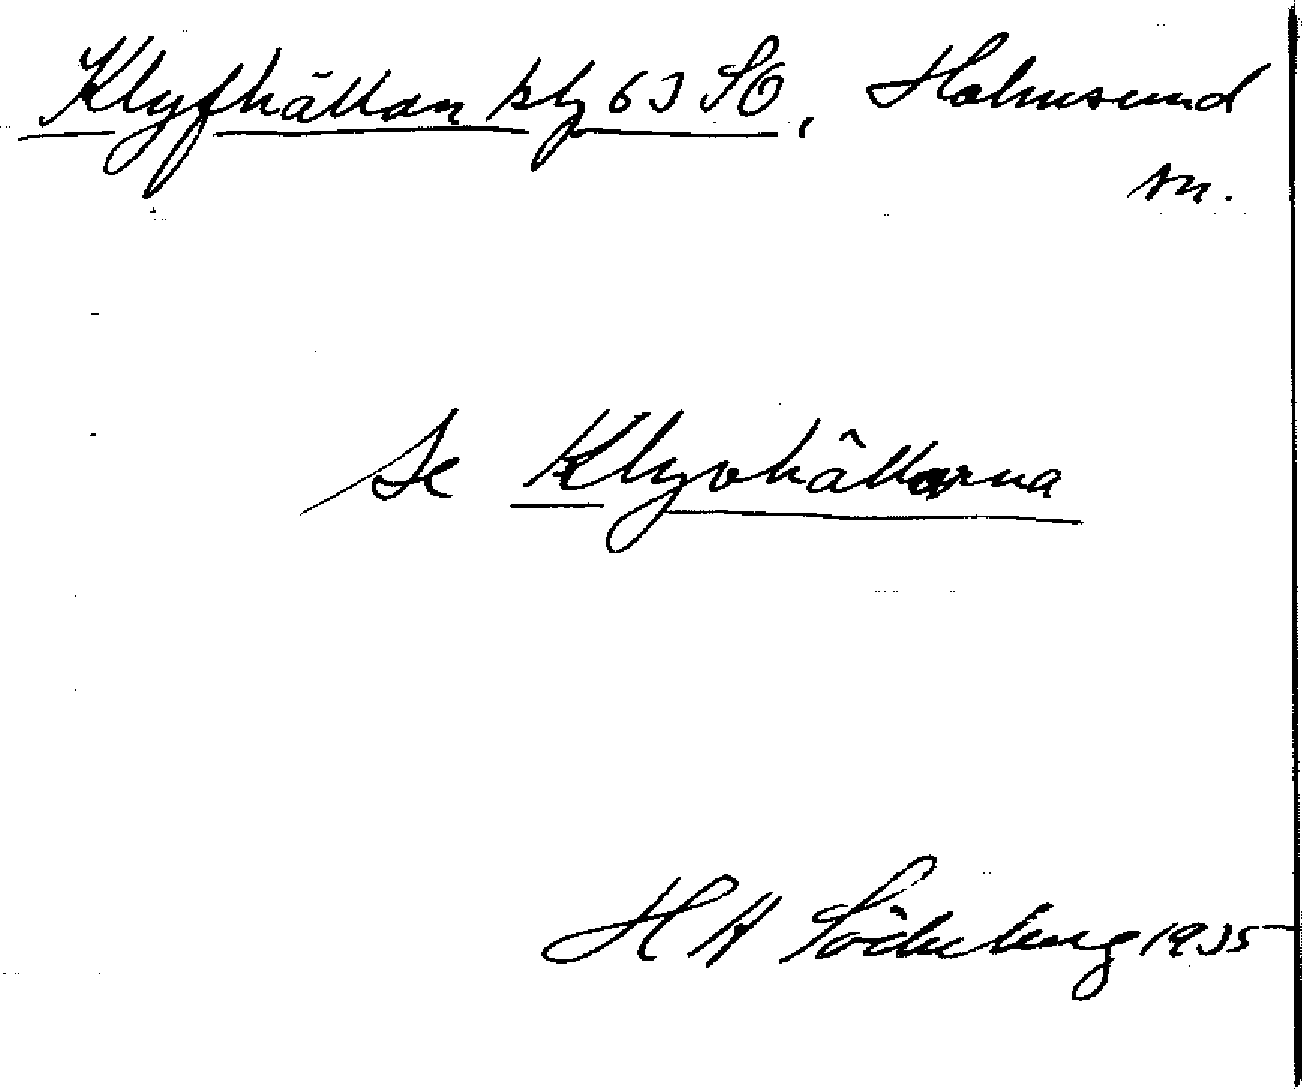 Klyfhällan kbl 63 SO, Holmsund
sn.
Se Klyvhällorna
H H Söderberg 1935